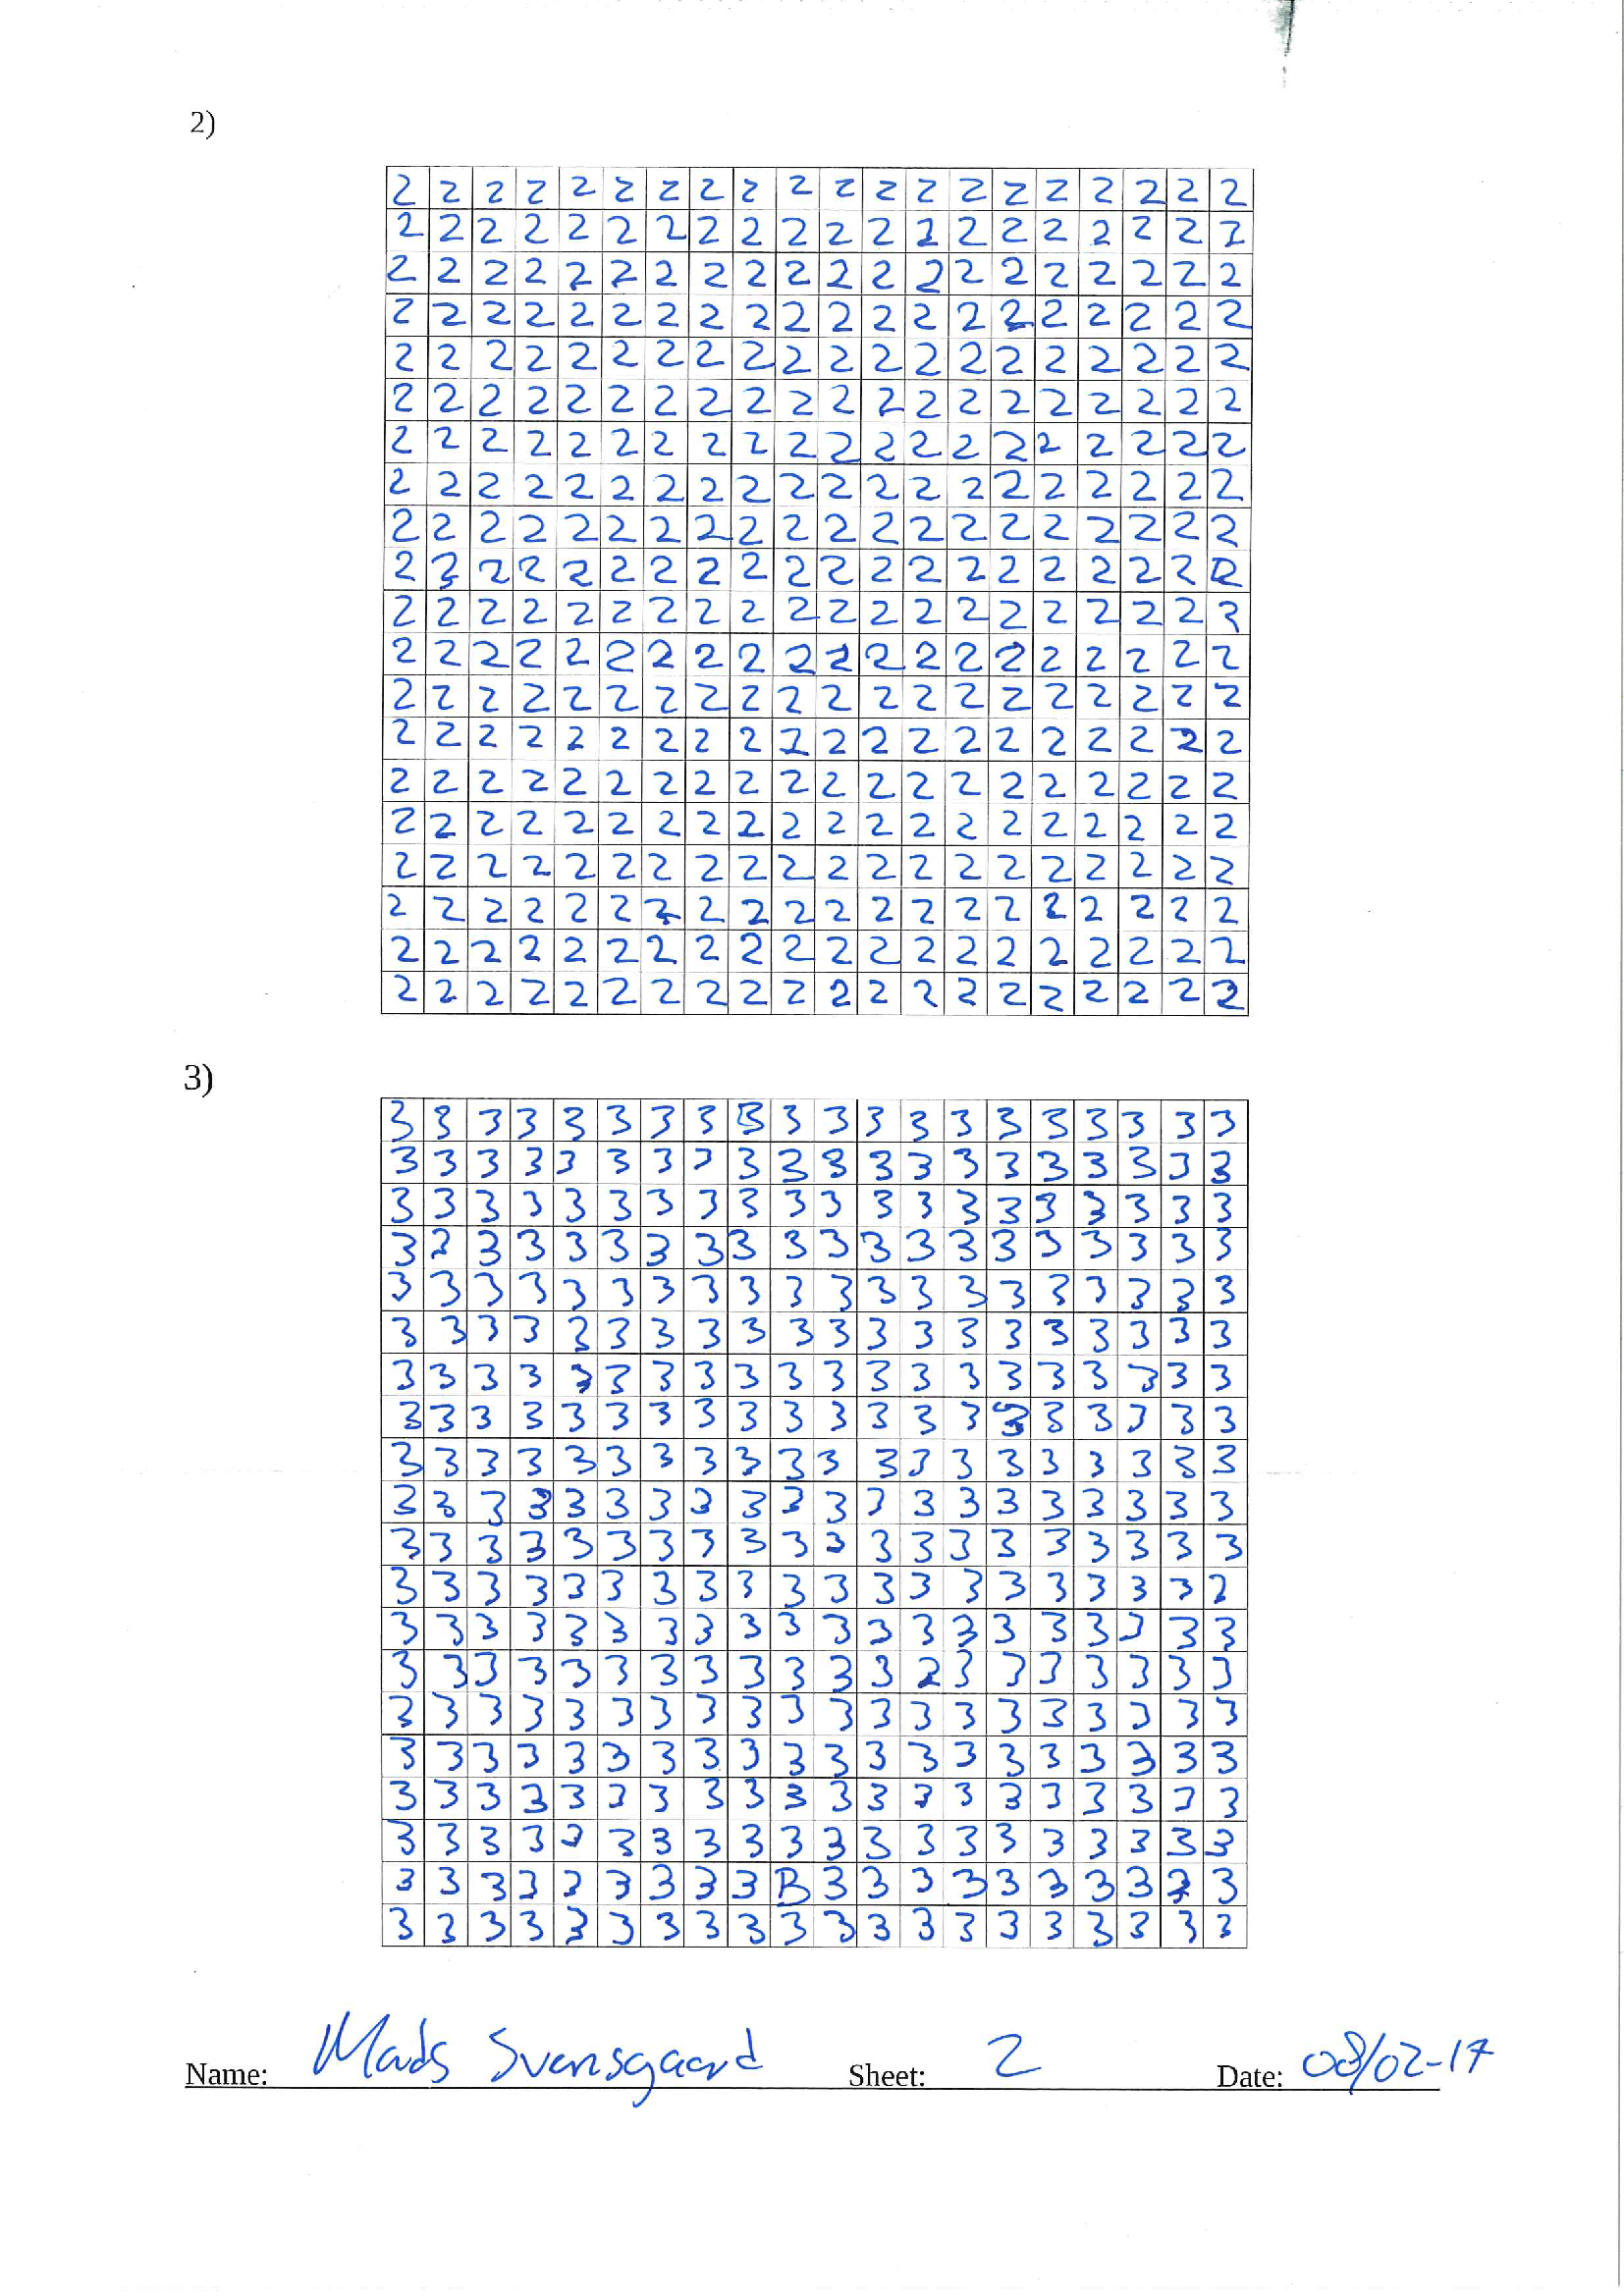 2)
2 2 2 2 2 2 2 2 2 2 2 2 2 2 2 2 2 2 2 2
2 2 2 2 2 2 2 2 2 2 2 2 2 2 2 2 2 2 2 2
2 2 2 2 2 2 2 2 2 2 2 2 2 2 2 2 2 2 2 2
2 2 2 2 2 2 2 2 2 2 2 2 2 2 2 2 2 2 2 2
2 2 2 2 2 2 2 2 2 2 2 2 2 2 2 2 2 2 2 2
2 2 2 2 2 2 2 2 2 2 2 2 2 2 2 2 2 2 2 2
2 2 2 2 2 2 2 2 2 2 2 2 2 2 2 2 2 2 2 2
2 2 2 2 2 2 2 2 2 2 2 2 2 2 2 2 2 2 2 2
2 2 2 2 2 2 2 2 2 2 2 2 2 2 2 2 2 2 2 2
2 2 2 2 2 2 2 2 2 2 2 2 2 2 2 2 2 2 2 2
2 2 2 2 2 2 2 2 2 2 2 2 2 2 2 2 2 2 2 2
2 2 2 2 2 2 2 2 2 2 2 2 2 2 2 2 2 2 2 2
2 2 2 2 2 2 2 2 2 2 2 2 2 2 2 2 2 2 2 2
2 2 2 2 2 2 2 2 2 2 2 2 2 2 2 2 2 2 2 2
2 2 2 2 2 2 2 2 2 2 2 2 2 2 2 2 2 2 2 2
2 2 2 2 2 2 2 2 2 2 2 2 2 2 2 2 2 2 2 2
2 2 2 2 2 2 2 2 2 2 2 2 2 2 2 2 2 2 2 2
2 2 2 2 2 2 2 2 2 2 2 2 2 2 2 2 2 2 2 2
2 2 2 2 2 2 2 2 2 2 2 2 2 2 2 2 2 2 2 2
2 2 2 2 2 2 2 2 2 2 2 2 2 2 2 2 2 2 2 2
3)
3 3 3 3 3 3 3 3 3 3 3 3 3 3 3 3 3 3 3 3
3 3 3 3 3 3 3 3 3 3 3 3 3 3 3 3 3 3 3 3
3 3 3 3 3 3 3 3 3 3 3 3 3 3 3 3 3 3 3 3
3 2 3 3 3 3 3 3 3 3 3 3 3 3 3 3 3 3 3 3
3 3 3 3 3 3 3 3 3 3 3 3 3 3 3 3 3 3 3 3
3 3 3 3 3 3 3 3 3 3 3 3 3 3 3 3 3 3 3 3
3 3 3 3 3 3 3 3 3 3 3 3 3 3 3 3 3 3 3 3
3 3 3 3 3 3 3 3 3 3 3 3 3 3 3 3 3 3 3 3
3 3 3 3 3 3 3 3 3 3 3 3 3 3 3 3 3 3 3 3
3 3 3 3 3 3 3 3 3 3 3 3 3 3 3 3 3 3 3 3
3 3 3 3 3 3 3 3 3 3 3 3 3 3 3 3 3 3 3 3
3 3 3 3 3 3 3 3 3 3 3 3 3 3 3 3 3 3 3 2
3 3 3 3 3 3 3 3 3 3 3 3 3 3 3 3 3 3 3 3
3 3 3 3 3 3 3 3 3 3 3 3 2 3 3 3 3 3 3 3
3 3 3 3 3 3 3 3 3 3 3 3 3 3 3 3 3 3 3 3
3 3 3 3 3 3 3 3 3 3 3 3 3 3 3 3 3 3 3 3
3 3 3 3 3 3 3 3 3 3 3 3 3 3 3 3 3 3 3 3
3 3 3 3 3 3 3 3 3 3 3 3 3 3 3 3 3 3 3 3
3 3 3 3 3 3 3 3 3 B 3 3 3 3 3 3 3 3 3 3
3 3 3 3 3 3 3 3 3 3 3 3 3 3 3 3 3 3 3 3
Name: Mads Svensgaard Sheet: 2 Date: 08/02-17